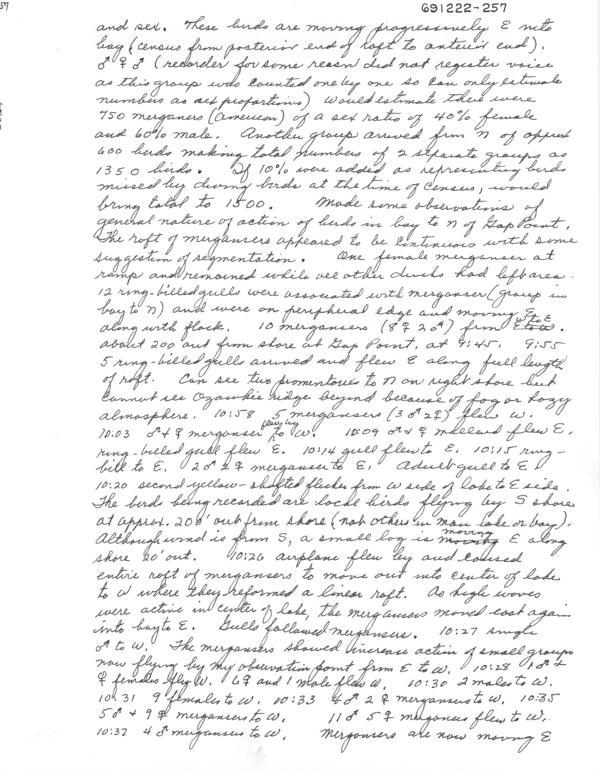 57
691222-257
and sex. These birds are moving progressively E into
bay (census from posterior end of raft to anterior end).
♂ ♀ ♂ (recorder for some reason did not register voice
as this group was counted one by one so can only estimate
numbers as sex proportions) would estimate there were
750 mergansers (American) of a sex ratio of 40% female
and 60% male. Another group arrived from N of approx
600 birds making total numbers of 2 separate groups as
1350 birds. If 10% were added as representing birds
missed by diving birds at the time of census, would
bring total to 1500. Made some observations of
general nature of action of birds in bay to N of Gap Point.
The raft of mergansers appeared to be continuous with some
suggestion of segmentation. One female merganser at
ramp and remained while all other ducks had left area.
12 ring-billed gulls were associated with merganser (group in
bay to N) and were on peripheral edge and moving E
along with flock. 10 mergansers (8♀ 2♂) from W to E.
about 200 out from shore at Gap Point, at 9:45. 9:55
5 ring-billed gulls arrived and flew E along full length
of raft. Can see two promontories to N on right shore but
cannot see Ozawkie ridge beyond because of fog or hazy
atmosphere. 10:58 5 mergansers (3♂ 2♀) flew W.
10:03 ♂ + ♀ merganser flew by to W. 10:09 ♂ + ♀ mallard flew E.
ring-billed gull flew E. 10:14 gull flew to E. 10:15 ring-
bill to E. 2♂ 2♀ merganser to E. Adult gull to E.
10:20 second yellow-shafted flicker from W side of lake to E side.
The birds being recorded are local birds flying by S shore
at approx. 200' out from shore (not others in main lake or bay).
Although wind is from S, a small log is moving E along
shore 20' out. 10:26 airplane flew by and caused
entire raft of mergansers to move out into center of lake
to W where they reformed a linear raft. As high waves
were active in center of lake, the mergansers moved east again
into bay to E. Gulls followed mergansers. 10:27 single
♂ to W. The mergansers showed increase action of small groups
now flying by my observation point from E to W. 10:28 1♂ +
♀ females fly W. 6♀ and 1 male flew W. 10:30 2 males to W.
10:31 9 females to W. 10:33 4♂ 2♀ mergansers to W. 10:35
5♂ + 9♀ mergansers to W. 11♂ 5♀ mergansers flew to W.
10:37 4♂ mergansers to W. Mergansers are now moving E